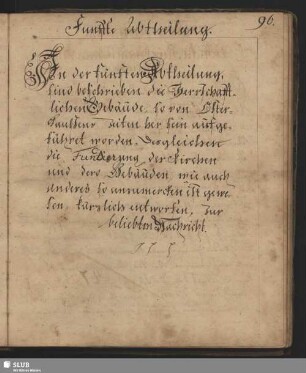 96.
Funffte Abtheilung.
In der fünfften Abtheilung,
sind beschrieben die Herrschafft-
lichen Gebäude, so von
zeiten her sein aufge-
führet worden, dergleichen
die Fundierung der Kirchen
und dero Gebäuden, wie auch
anderes so anzumercken ist gewe-
sen, kürtzlich entworfen, zur
beliebten Nachricht.
SLUB